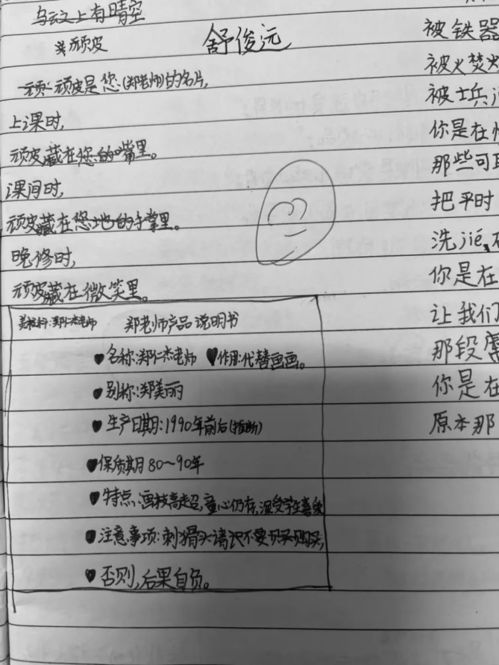 乌云之上有晴空
顽皮
舒俊远
顽皮是您(郑老师)的名片,
上课时,
顽皮藏在您的嘴里。
课间时,
顽皮藏在您地的手掌里。
晚修时,
顽皮藏在微笑里。
郑老师产品说明书
♥名称:郑仁杰老师 ♥作用:代替画画。
♥别称:郑美丽
♥生产日期:1990年前后(推断)
♥保质期80~90年
♥特点:画技高超,童心仍存,深受学生喜爱
♥注意事项:刺猬头请
♥否则,后果自负。
被铁器
被火焚
被士兵
你是在
那些可
把平时
洗jié,
你是在
让我们
那段
你是在
原本那